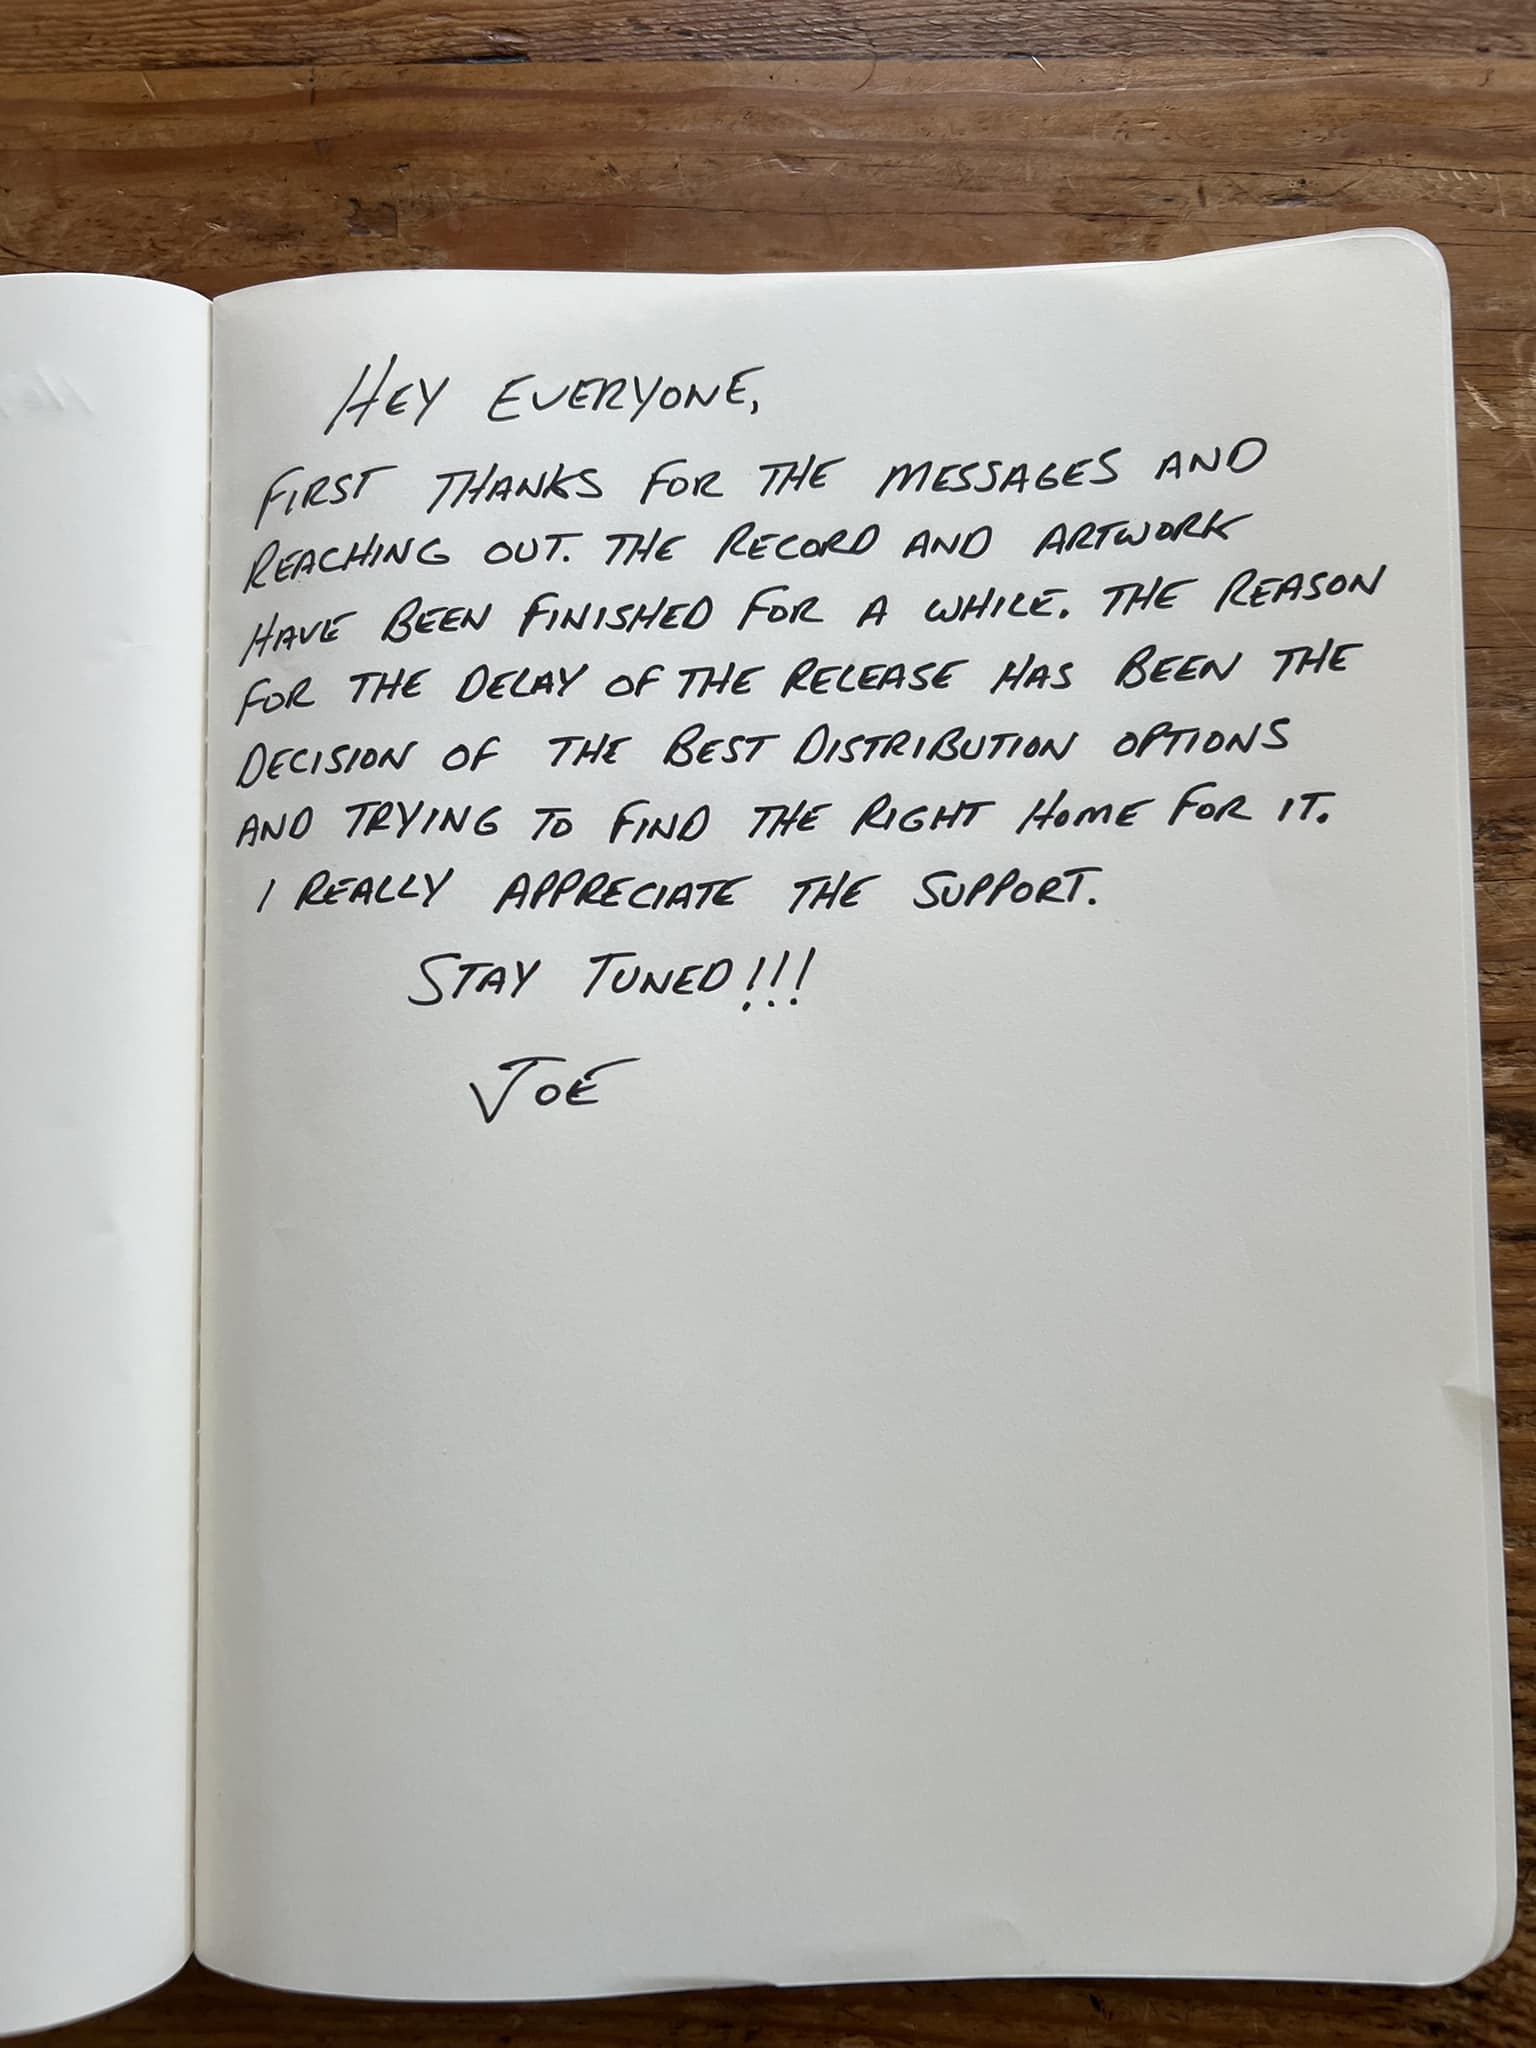 HEY EVERYONE,
FIRST THANKS FOR THE MESSAGES AND
REACHING OUT. THE RECORD AND ARTWORK
HAVE BEEN FINISHED FOR A WHILE. THE REASON
FOR THE DELAY OF THE RELEASE HAS BEEN THE
DECISION OF THE BEST DISTRIBUTION OPTIONS
AND TRYING TO FIND THE RIGHT HOME FOR IT.
I REALLY APPRECIATE THE SUPPORT.
STAY TUNED!!!
JOE